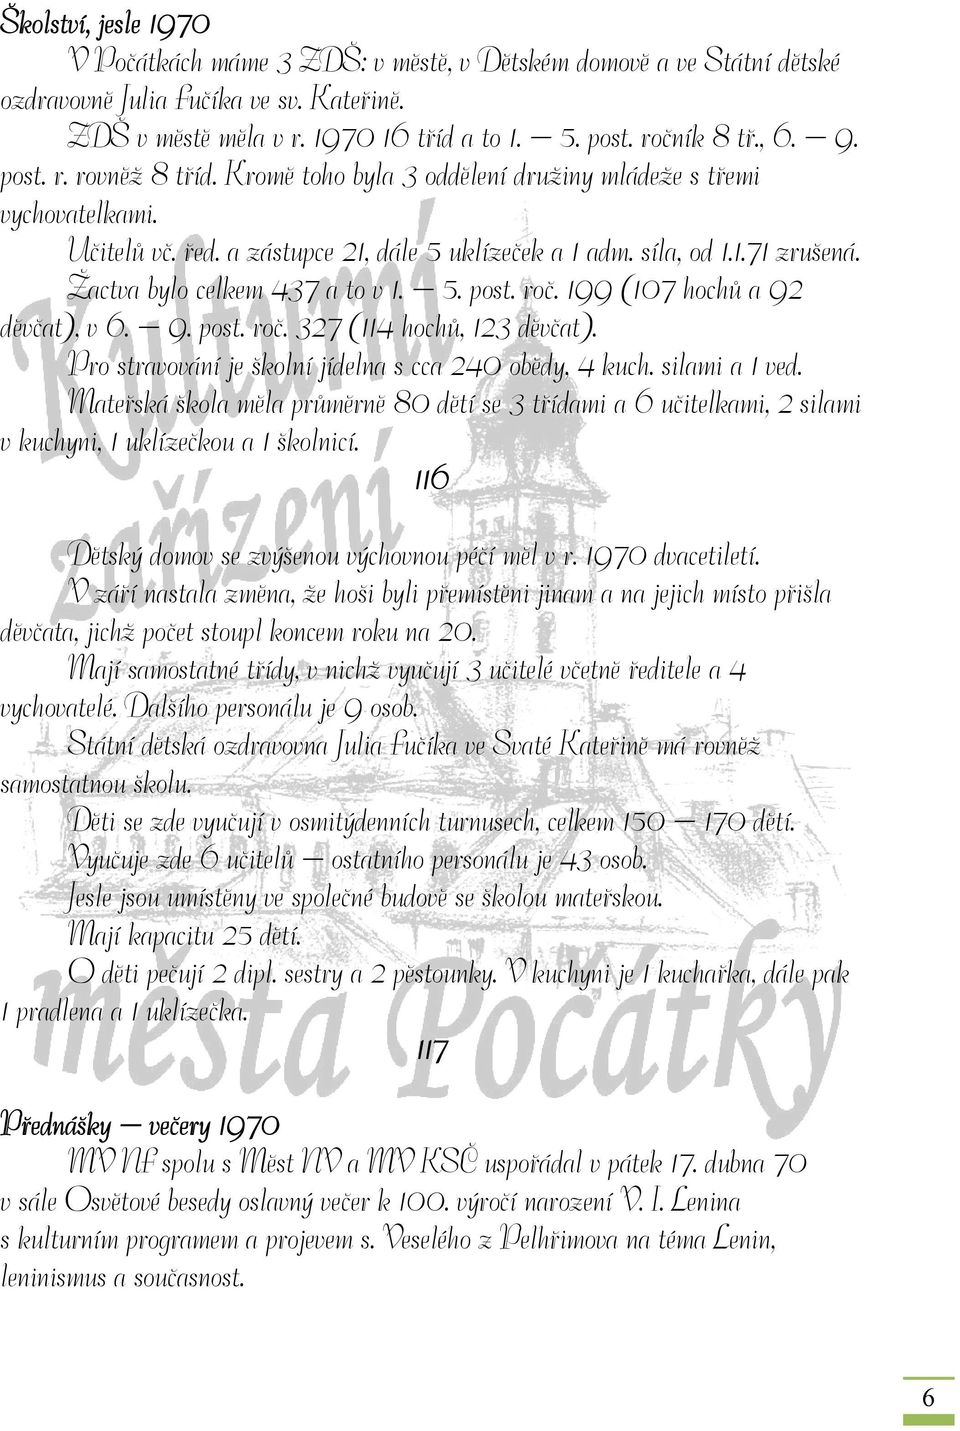 Školství, jesle 1970
V Počátkách máme 3 ZDŠ: v městě, v Dětském domově a ve Státní dětské
ozdravovně Julia Fučíka ve sv. Kateřině.
ZDŠ v městě měla v r. 1970 16 tříd a to 1. – 5. post. ročník 8 tř., 6. – 9.
post. r. rovněž 8 tříd. Kromě toho byla 3 oddělení družiny mládeže s třemi
vychovatelkami.
Učitelů vč. řed. a zástupce 21, dále 5 uklízeček a 1 adm. síla, od 1.1.71 zrušená.
Žactva bylo celkem 437 a to v 1. – 5. post. roč. 199 (107 hochů a 92
děvčat), v 6. – 9. post. roč. 327 (114 hochů, 123 děvčat).
Pro stravování je školní jídelna s cca 240 obědy. 4 kuch. silami a 1 ved.
Mateřská škola měla průměrně 80 dětí se 3 třídami a 6 učitelkami, 2 silami
v kuchyni, 1 uklízečkou a 1 školnicí.
116
Dětský domov se zvýšenou výchovnou péčí měl v r. 1970 dvacetiletí.
V září nastala změna, že hoši byli přemístěni jinam a na jejich místo přišla
děvčata, jichž počet stoupl koncem roku na 20.
Mají samostatné třídy, v nichž vyučují 3 učitelé včetně ředitele a 4
vychovatelé. Dalšího personálu je 9 osob.
Státní dětská ozdravovna Julia Fučíka ve Svaté Kateřině má rovněž
samostatnou školu.
Děti se zde vyučují v osmitýdenních turnusech, celkem 150 – 170 dětí.
Vyučuje zde 6 učitelů – ostatního personálu je 43 osob.
Jesle jsou umístěny ve společné budově se školou mateřskou.
Mají kapacitu 25 dětí.
O děti pečují 2 dipl. sestry a 2 pěstounky. V kuchyni je 1 kuchařka, dále pak
1 pradlena a 1 uklízečka.
117
Přednášky – večery 1970
MV NF spolu s Měst NV a MV KSČ uspořádal v pátek 17. dubna 70
v sále Osvětové besedy oslavný večer k 100. výročí narození V. I. Lenina
s kulturním programem a projevem s. Veselého z Pelhřimova na téma Lenin,
leninismus a současnost.
Kulturní
zařízení
města Počátky
6